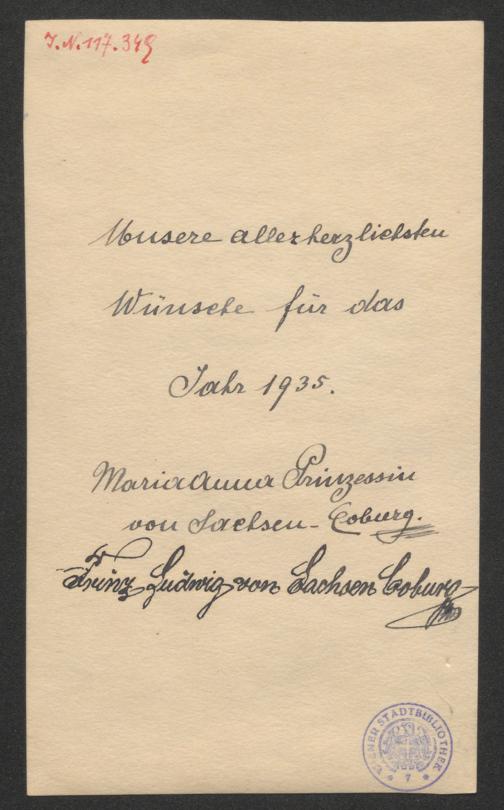 J.N. 117.349
Unsere allerherzlichsten
Wünsche für das
Jahr 1935.
Maria Anna Prinzessin
von Sachsen-Coburg.
Prinz Ludwig von Sachsen Coburg
WIENER STADTBIBLIOTHEK
7